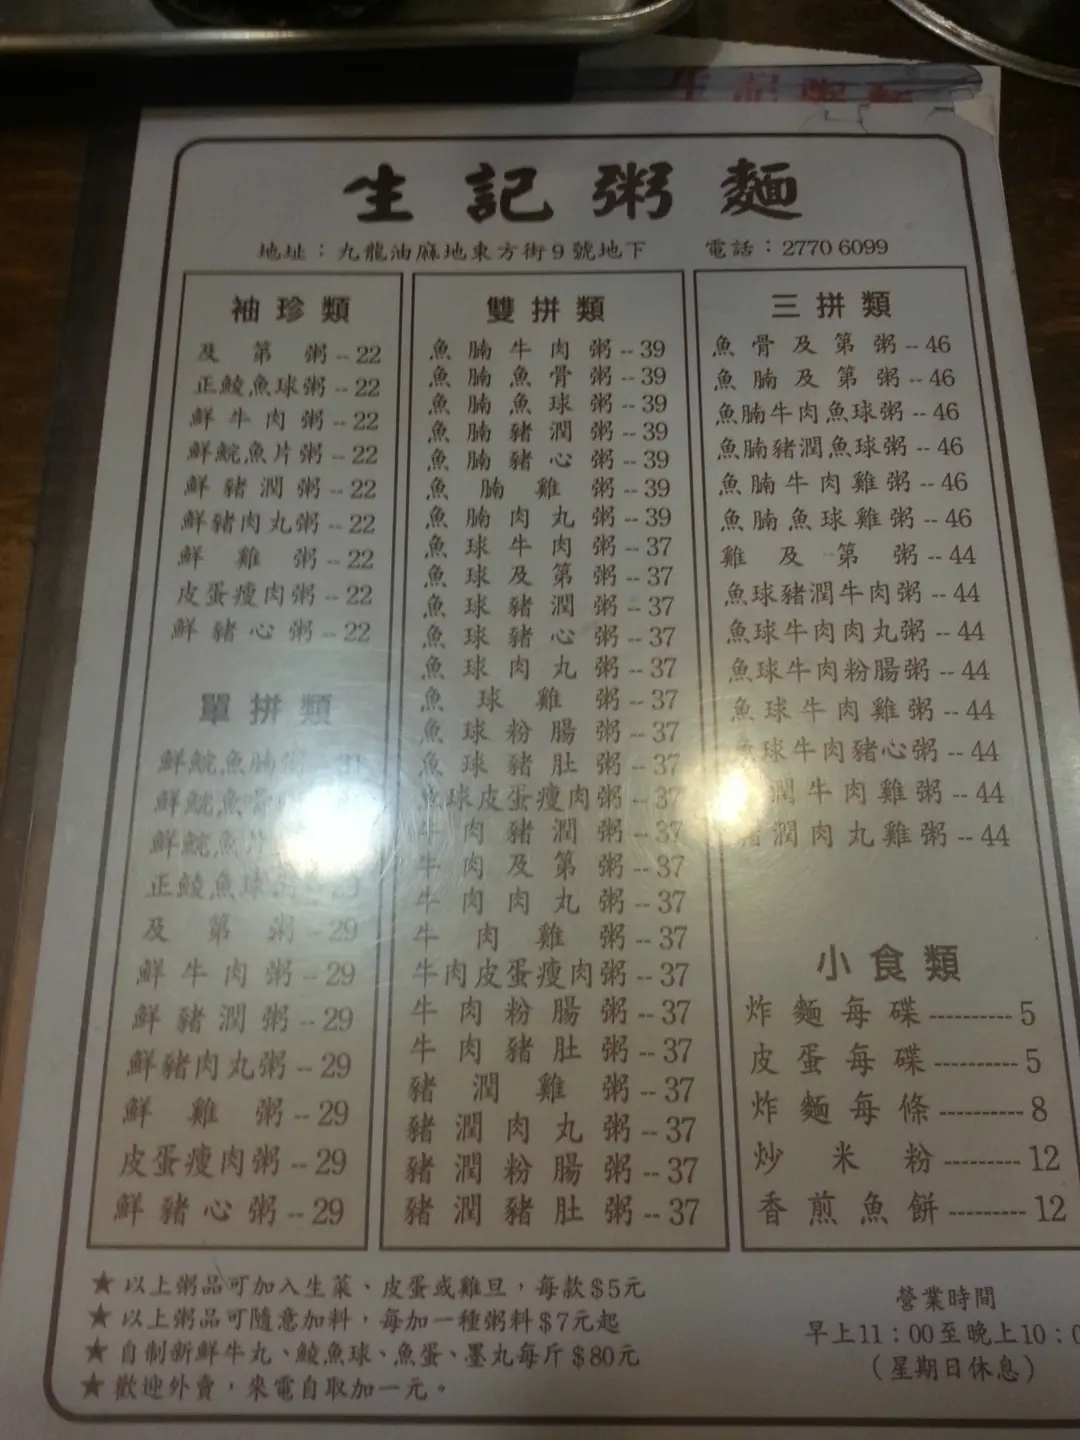 生記粥麵
地址：九龍油麻地東方街9號地下 電話：2770 6099
袖珍類
及第粥--22
正鯪魚球粥--22
鮮牛肉粥--22
鮮鯇魚片粥--22
鮮豬潤粥--22
鮮豬肉丸粥--22
鮮雞粥--22
皮蛋瘦肉粥--22
鮮豬心粥--22
單拼類
鮮鯇魚腩粥 31
鮮鯇魚骨
鮮鯇魚片
正鯪魚球粥--29
及第粥--29
鮮牛肉粥--29
鮮豬潤粥--29
鮮豬肉丸粥--29
鮮雞粥--29
皮蛋瘦肉粥--29
鮮豬心粥--29
雙拼類
魚腩牛肉粥--39
魚腩魚骨粥--39
魚腩魚球粥--39
魚腩豬潤粥--39
魚腩豬心粥--39
魚腩雞粥--39
魚腩肉丸粥--39
魚球牛肉粥--37
魚球及第粥--37
魚球豬潤粥--37
魚球豬心粥--37
魚球肉丸粥--37
魚球雞粥--37
魚球粉腸粥--37
魚球豬肚粥--37
魚球皮蛋瘦肉粥--37
牛肉豬潤粥--37
牛肉及第粥--37
牛肉肉丸粥--37
牛肉雞粥--37
牛肉皮蛋瘦肉粥--37
牛肉粉腸粥--37
牛肉豬肚粥--37
豬潤雞粥--37
豬潤肉丸粥--37
豬潤粉腸粥--37
豬潤豬肚粥--37
三拼類
魚骨及第粥--46
魚腩及第粥--46
魚腩牛肉魚球粥--46
魚腩豬潤魚球粥--46
魚腩牛肉雞粥--46
魚腩魚球雞粥--46
雞及第粥--44
魚球豬潤牛肉粥--44
魚球牛肉肉丸粥--44
魚球牛肉粉腸粥--44
魚球牛肉雞粥--44
魚球牛肉豬心粥--44
潤牛肉雞粥--44
豬潤肉丸雞粥--44
小食類
炸麵每碟----------5
皮蛋每碟----------5
炸麵每條----------8
炒米粉---------12
香煎魚餅---------12
★以上粥品可加入生菜、皮蛋或雞旦，每款$5元
★以上粥品可隨意加料，每加一種粥料$7元起
★自制新鮮牛丸、鯪魚球、魚蛋、墨丸每斤$80元
★歡迎外賣，來電自取加一元。
營業時間
早上11：00至晚上10：0
（星期日休息）